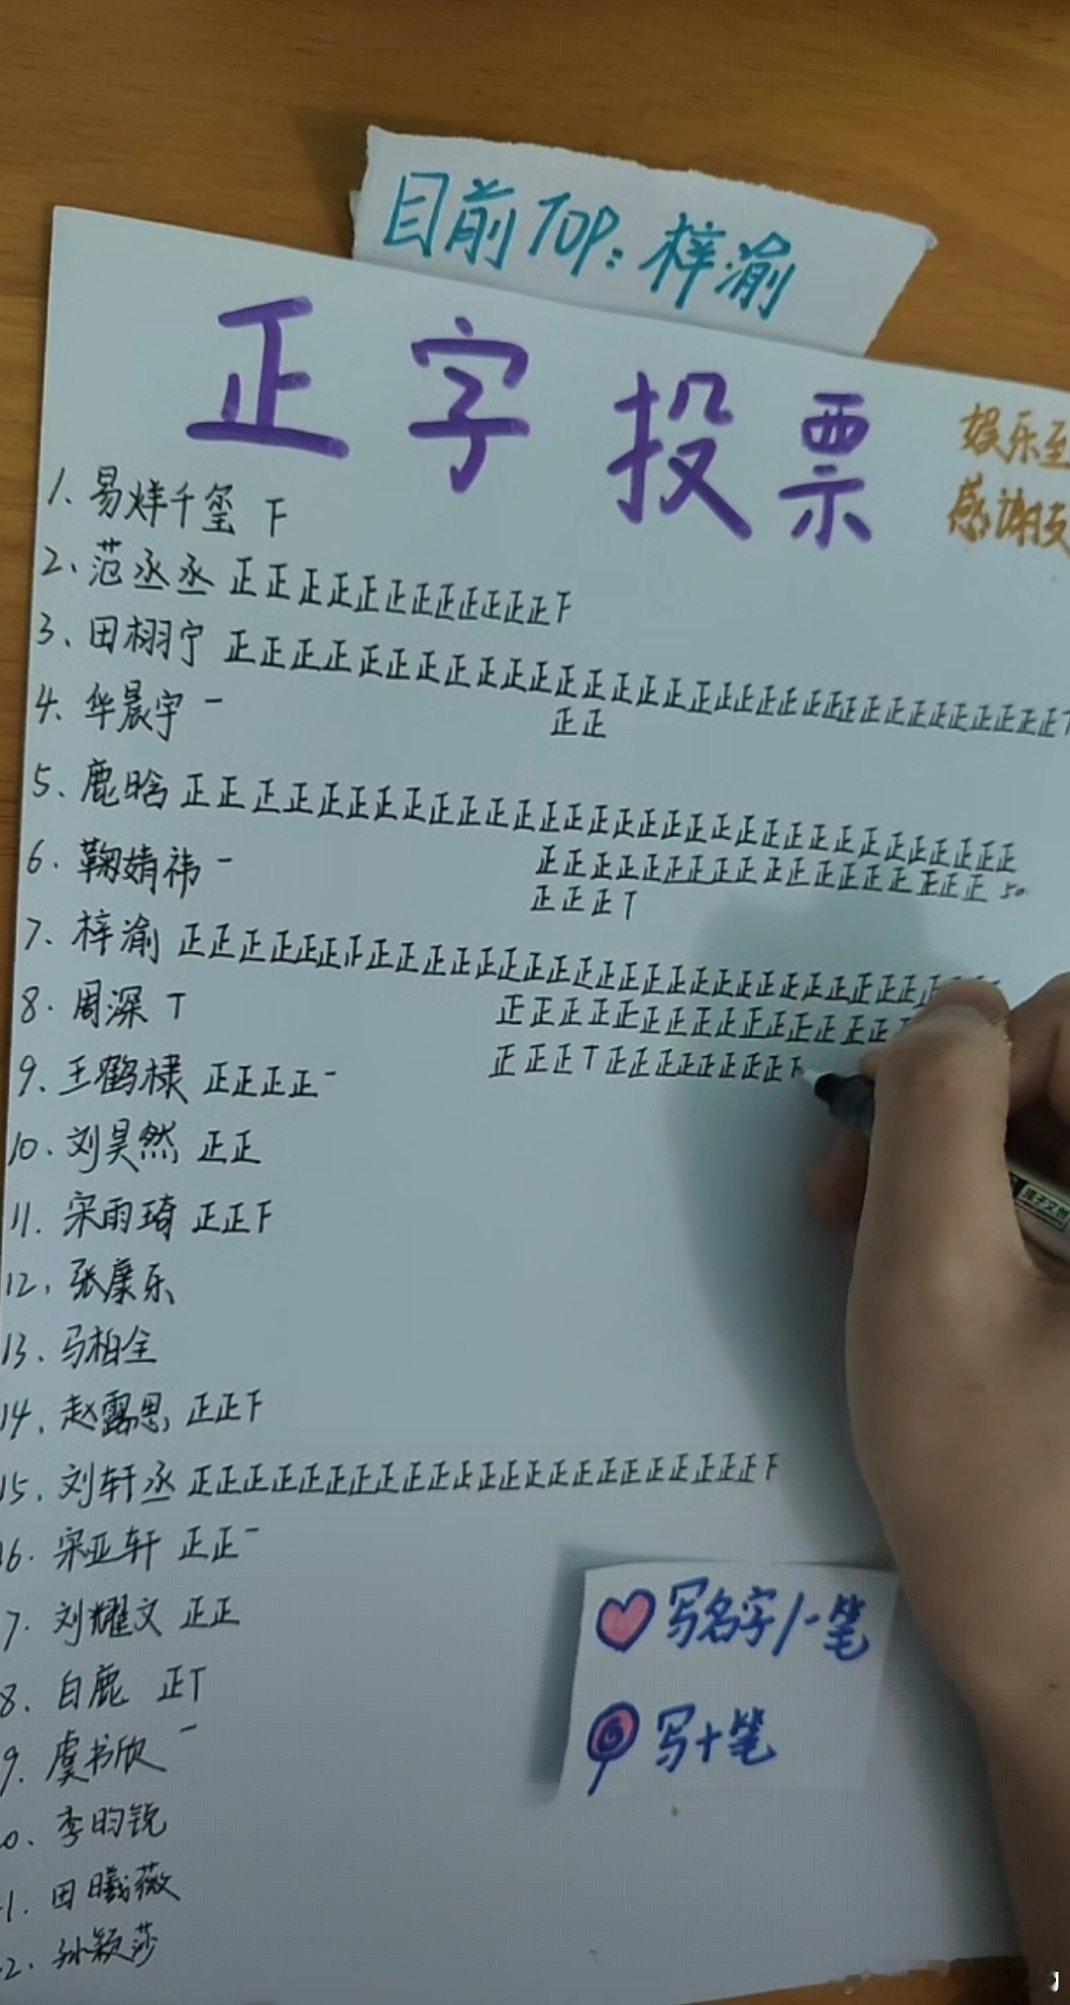 目前TOP:梓渝
正字投票
娱乐至
感谢
1、易烊千玺 下
2、范丞丞 正正正正正正正正正正正下
3、田栩宁 正正正正正正正正正正正正正正正正正正正正正正正正正正正正正正
正正
4、华晨宇 一
5、鹿晗 正正正正正正正正正正正正正正正正正正正正正正正正正正正正正正
正正正正正正正正正正正正正正正正正 50
正正正T
6.鞠婧祎 一
7、梓渝 正正正正正正正正正正正正正正正正正正正正正正正正正正正正
正正正正正正正正正正正正正正
正正正T正正正正正正正下
8.周深 T
9、王鹤棣 正正正正一
10.刘昊然 正正
11.宋雨琦 正正下
12,张康乐
13.马柏全
14,赵露思 正正下
15.刘轩丞 正正正正正正正正正正正正正正正正正正正正正下
6.宋亚轩 正正一
7.刘耀文 正正
8.白鹿 正T
9.虞书欣 一
0.李昀锐
1.田曦薇
2.孙颖莎
写名字/一笔
写十笔